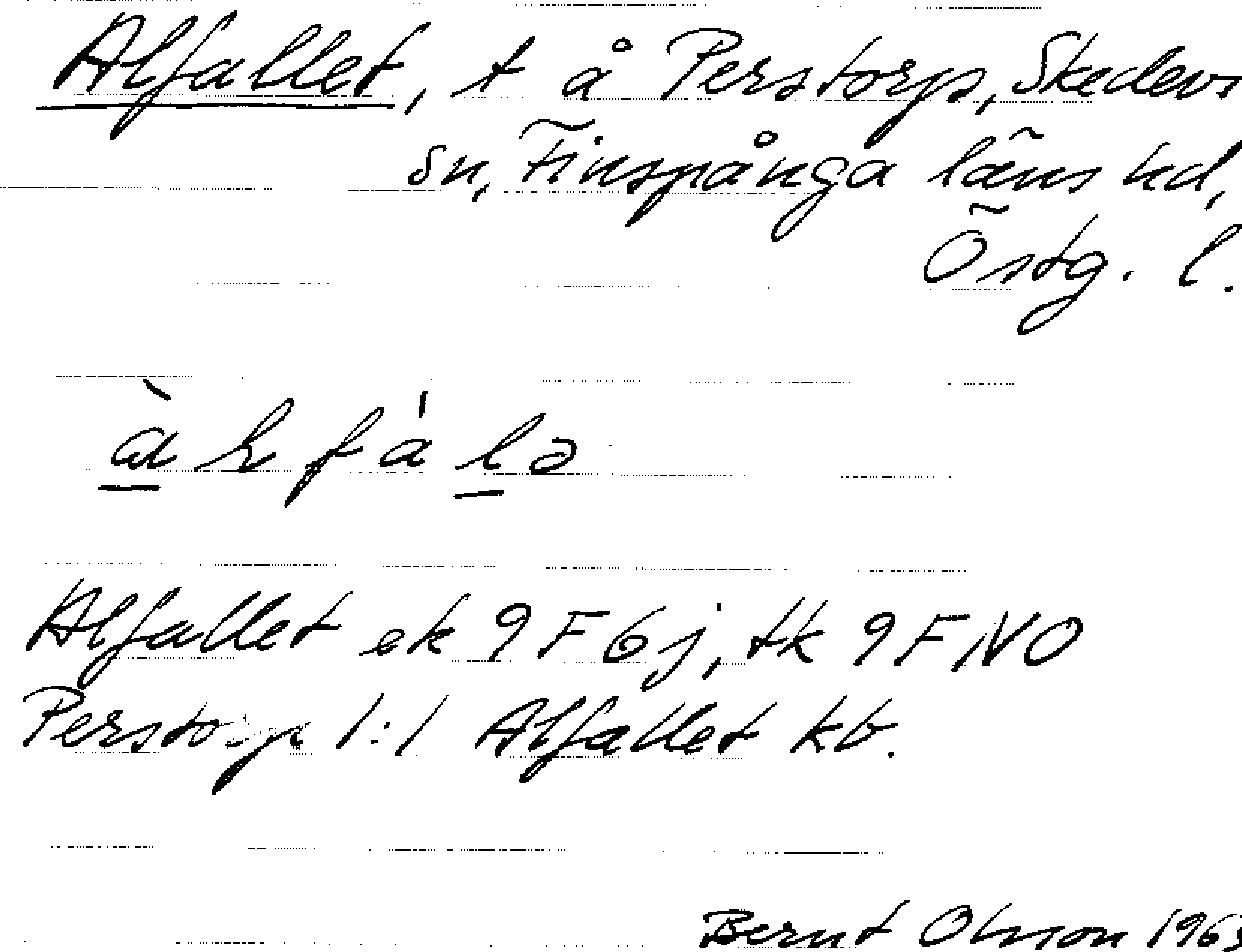 Alfallet, t å Perstorp, Skedevi
sn, Finspånga läns hd,
Östg. l.
Alfallet ek 9F6j, tk 9FNO
Perstorp 1:1 Alfallet kb.
Bernt Olsson 1963